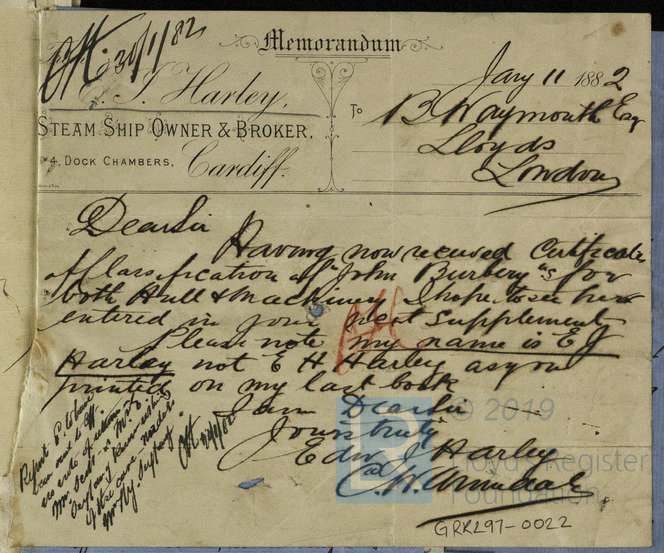 Memorandum
30/1/82
E. J. Harley,
STEAM SHIP OWNER & BROKER,
4, DOCK CHAMBERS, Cardiff.
Jany 11 1882
To B Waymouth Esq
Lloyds
London
Dear Sir
Having now received Certificate
of Classification of "John Burbery"s for
both Hull & Machinery I hope to see her
entered in your next Supplement
Please note my name is E J
Harley not E H Harley as you
printed on my last book
I am Dear Sir
Yours truly
Edw J Harley
© 2019
Lloyd's Register
Foundation
GRRL97-0022